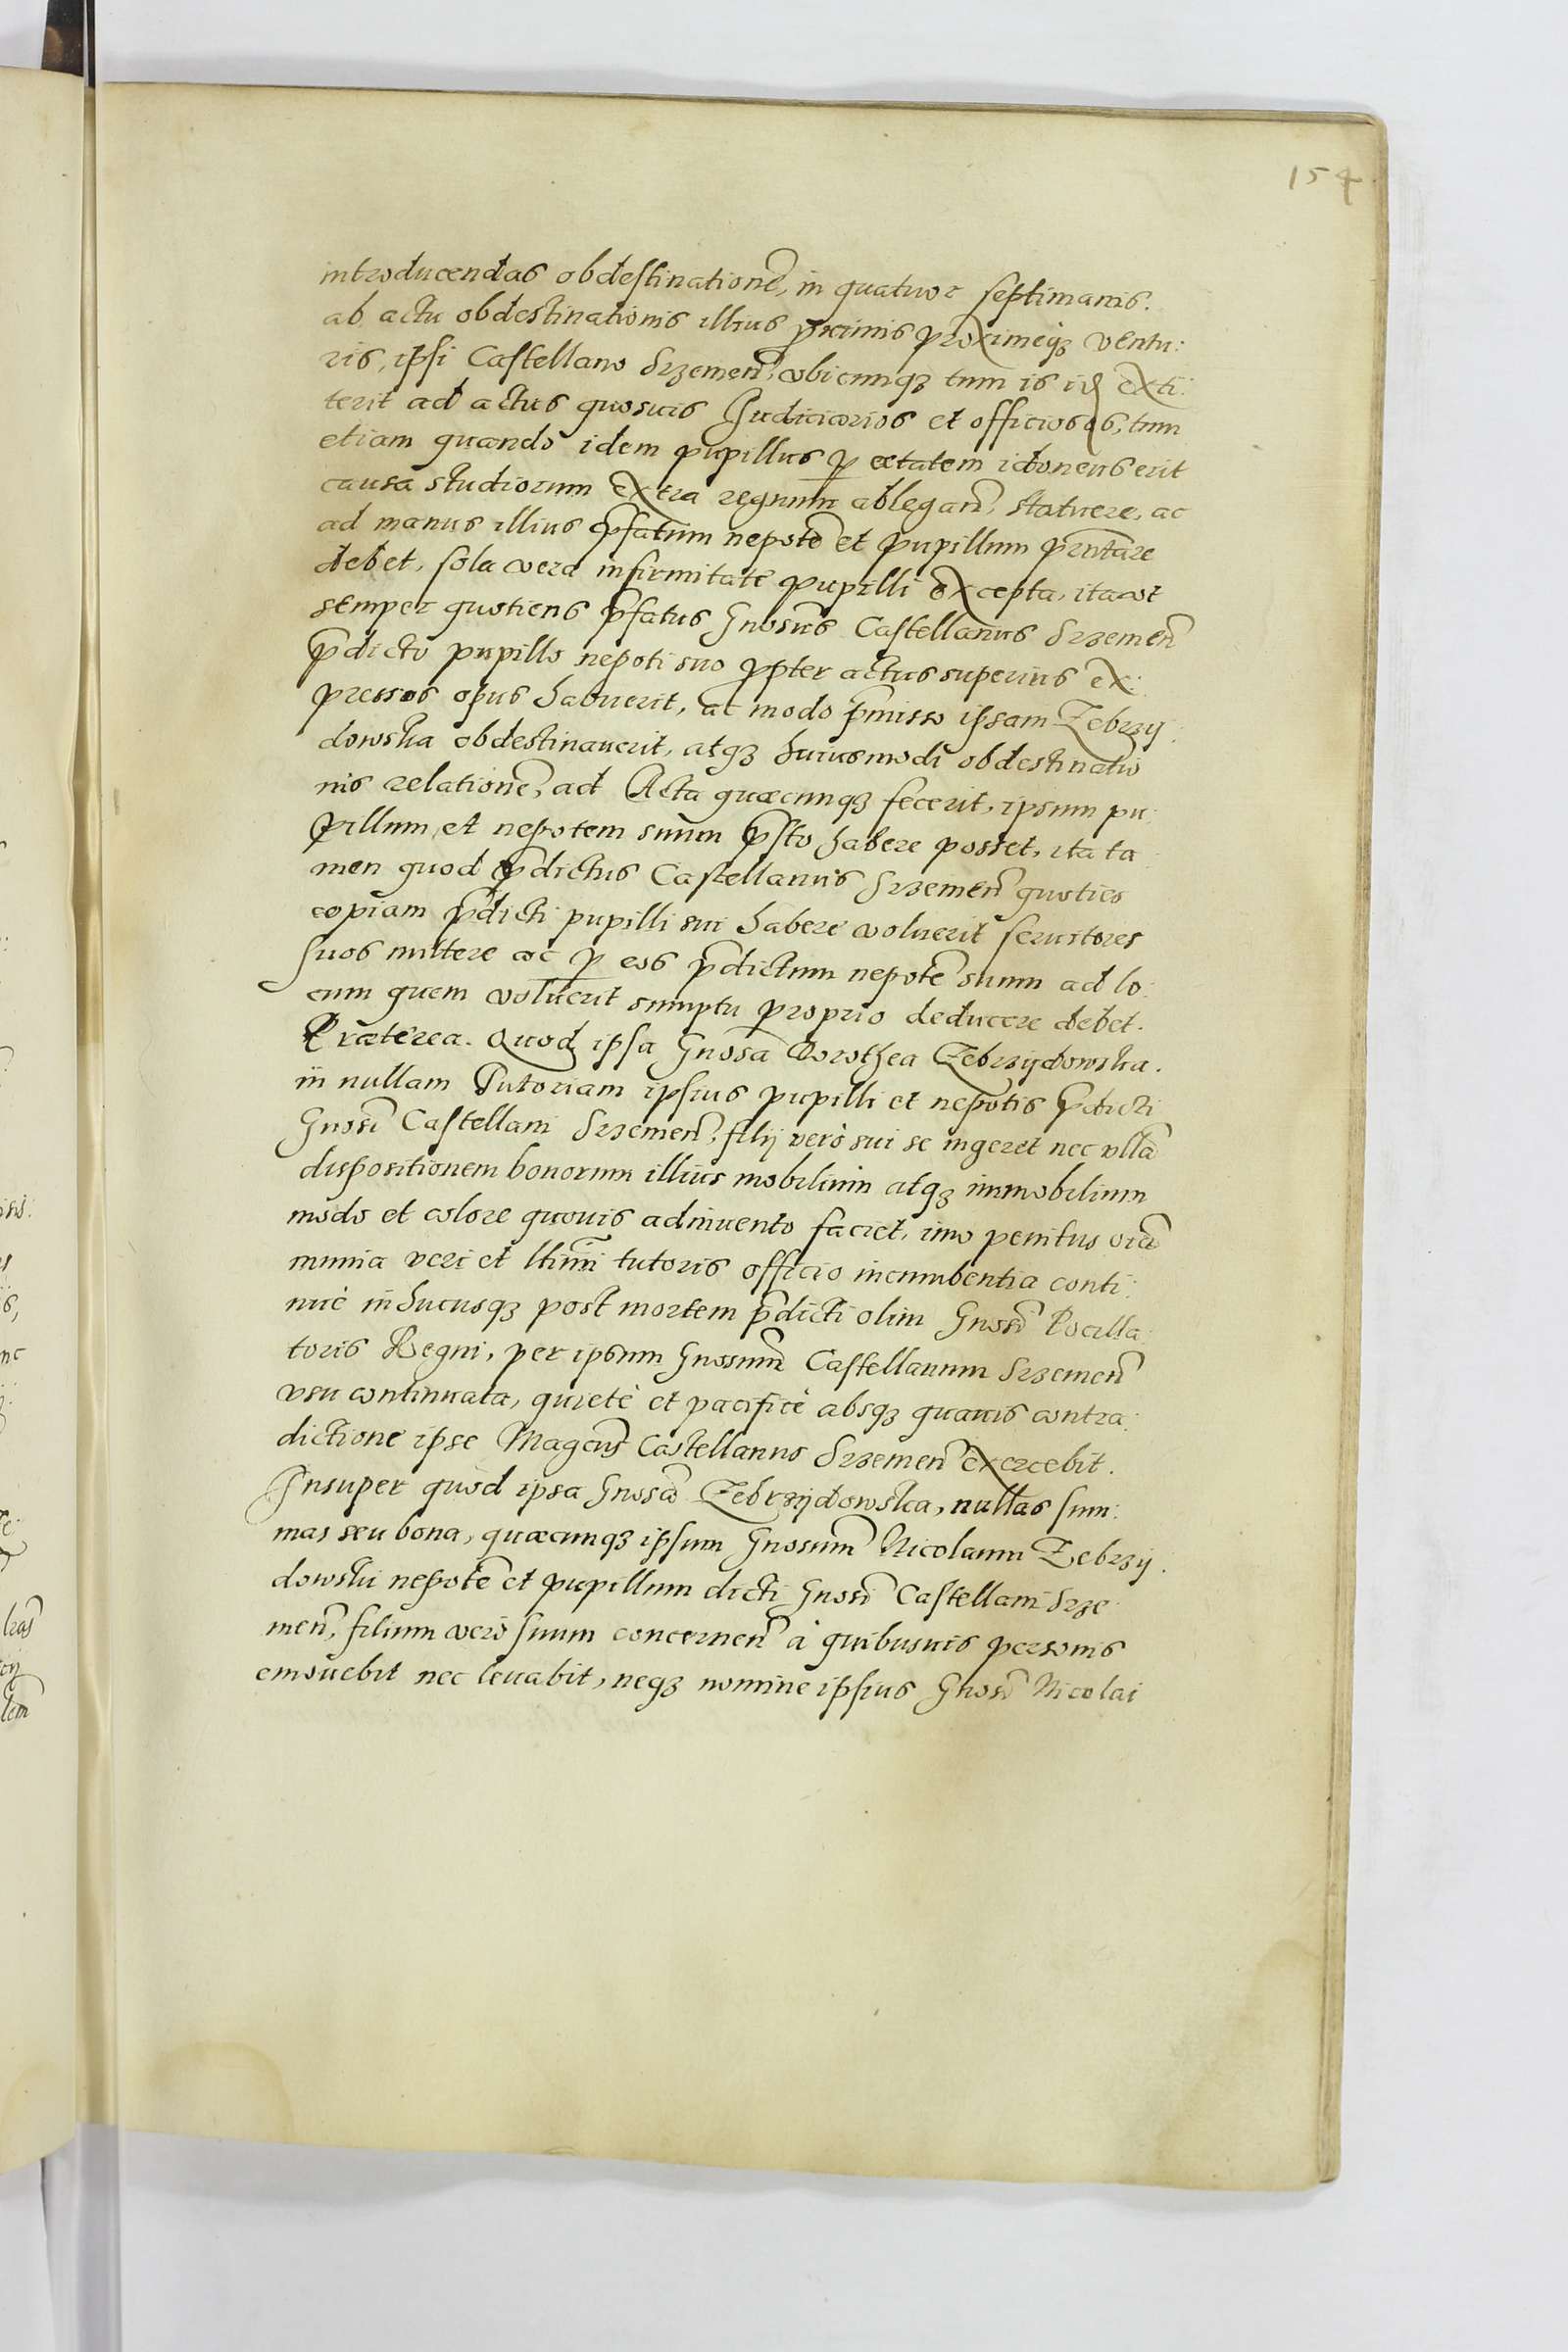 154
introducendas obdestinatione͂, in quatuor septimanis.
ab actu obdestinationis illius p̄ximis proximeq3 ventu:
ris, ipsi Castellano Srzemen͂, vbicunq3 tum is id exti:
terit ad actus quosuis Judiciarios et officiosos, tum
etiam quando idem pupillus p̱ ætatem idoneus erit
causa studiorum extra regnum ablegan͂, statuere, ac
ad manus illius p̄fatum nepote͂ et pupillum p̄ntare
debet, sola vera infirmitate pupilli excepta, ita vt
semper quotiens p̄fatus Gnosus͂ Castellanus Srzemen͂
p̄dicto pupillo nepoti suo p̄pter actus superius ex:
pressos opus habuerit, ac modo p̄misso ipsam Zebrzij:
dowska obdestinauerit, atq3 huiusmodi obdestinatio
nis relatione͂, ad Acta quæcunq3 fecerit, ipsum pu:
pillum et nepotem suum p̄sto habere posset, ita ta
men quod p̄dictus Castellanus Srzemen͂ quoties
copiam p̄dicti pupilli sui habere voluerit seruitores
suos mittere ac p̱ eos p̄dictum nepote͂ suum ad lo:
cum quem voluerit sumptu proprio deducere debet.
Præterea. Quod ipsa Gnosa͂ Dorothea Zebrzijdowska.
in nullam Tutoriam ipsius pupilli et nepotis p̄dicti
Gnosi͂ Castellani Srzemen͂, filij verò sui se ingeret nec vlla͂
dispositionem bonorum illius mobilium atq3 immobilium
modo et colore quouis adinuento faciet, imo penitus o͂ia
munia veri et lt̄imi tutoris officio incumbentia conti:
nuè in hucusq3 post mortem p̄dicti olim Gnosi͂ Pocilla:
toris Regni, per ipsum Gnosum͂ Castellanum Srzemen͂
vsu continuata, quietè et pacificè absq3 quauis contra:
dictione ipse Magcus͂ Castellanus Srzemen͂ exercebit.
Insuper quod ipsa Gnosa͂ Zebrzijdowska, nullas sum:
mas seu bona, quæcunq3 ipsum Gnosum͂ Nicolaum Zebrzij:
dowski nepote͂ et pupillum dicti Gnosi͂ Castellani Srze
men͂, filium verò suum concernen͂ à quibusuis personis
emouebit nec leuabit, neq3 nomine ipsius Gnosi͂ Nicolai